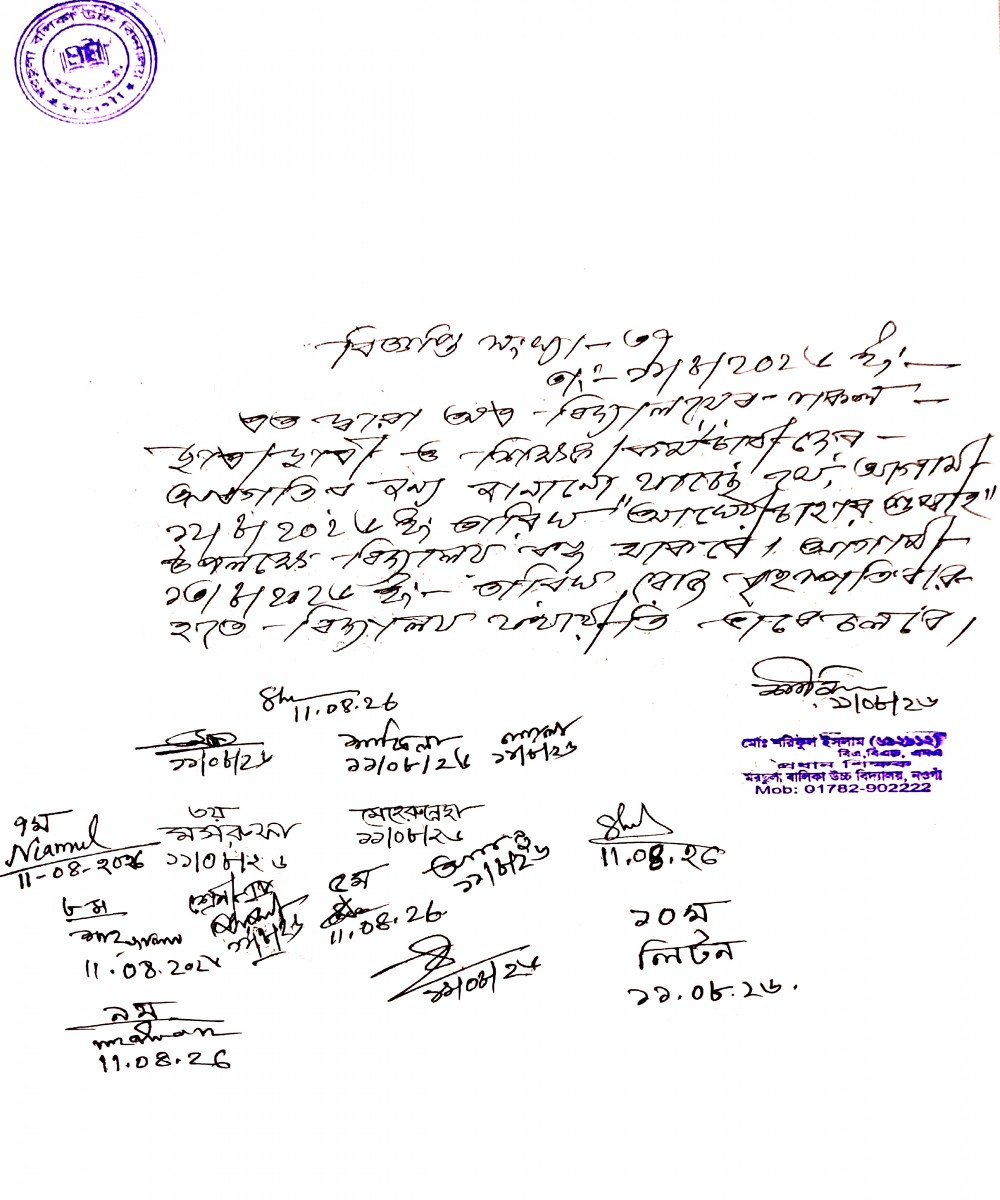 বালিকা উচ্চ বিদ্যালয়
বিজ্ঞপ্তি সংখ্যা - ৩৭
তাং- ১১/৮/২০২৬ ইং
এত দ্বারা অত্র বিদ্যালয়ের সকল
ছাত্র/ছাত্রী ও শিক্ষক/কর্মচারীদের
অবগতির জন্য জানানো যাচ্ছে যে, আগামী
১২/৮/২০২৬ ইং তারিখ "আখেরী চাহার শুম্বাহ"
উপলক্ষে বিদ্যালয় বন্ধ থাকবে। আগামী
১৩/৮/২০২৬ ইং তারিখ রোজ বৃহস্পতিবার
হতে বিদ্যালয় যথারীতি ভাবে চলবে।
১১/০৮/২৬
মোঃ শরিফুল ইসলাম
বি.এ,বি.এড,
প্রধান শিক্ষক
বালিকা উচ্চ বিদ্যালয়, নওগাঁ
Mob: 01782-902222
11.08.26
১১/০৮/২৬
১১/০৮/২৬
১১/০৮/২৬
৭ম
Niamul
11-08-2026
৩য়
১১/০৮/২৬
মেহেরুন্নেছা
১১/০৮/২৬
১১/০৮/২৬
11.08.26
৮ম
11.08.2026
৫ম
11.08.26
১১/০৮/২৬
১০ম
লিটন
১১.০৮.২৬.
৯ম
11.08.26